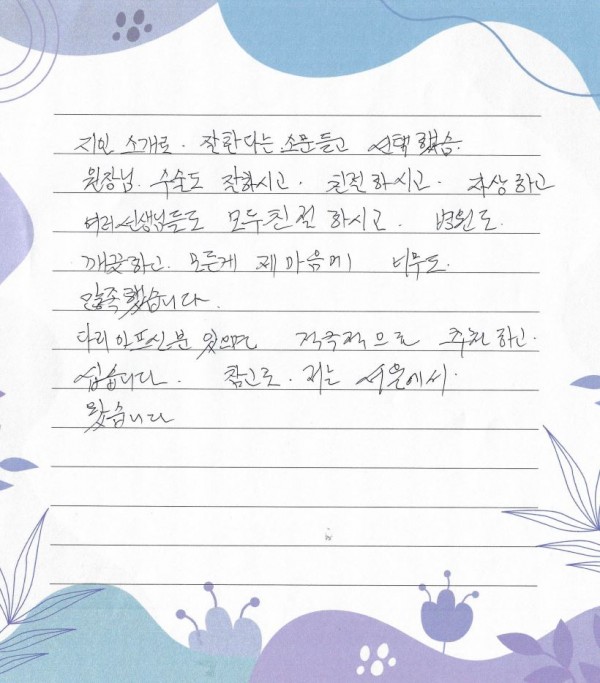 지인 소개로. 잘한다는 소문듣고 선택했음.
원장님. 수술도 잘하시고. 친절하시고. 자상하고
여러선생님들도 모두친절하시고. 병원도.
깨끗하고. 모든게 제마음에 너무도.
만족했습니다.
다리아프신분 있으면 적극적으로 추천하고.
싶습니다. 참고로. 저는 서울에서.
왔습니다